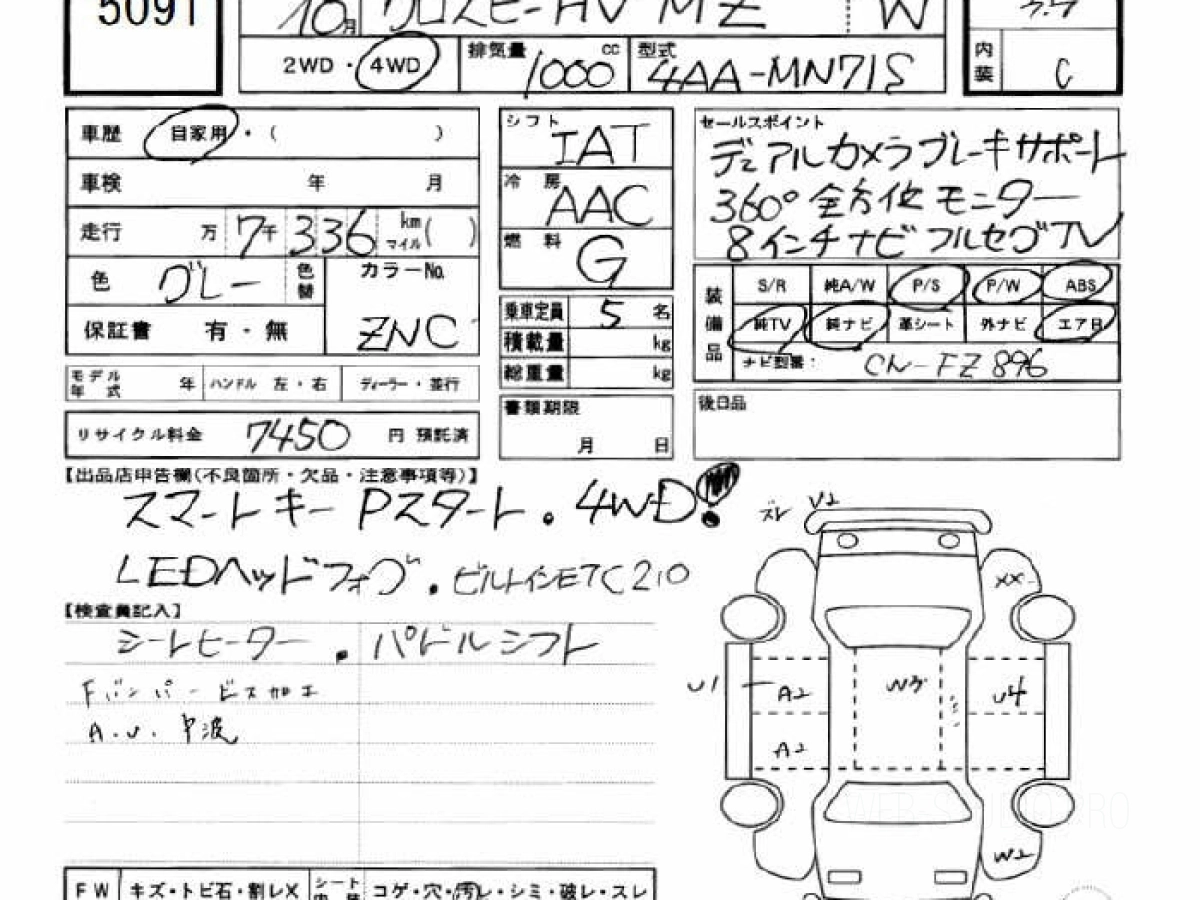 5091
10月 クロスビー HV MZ W
2WD・4WD 排気量 1000 cc 型式 4AA-MN71S 内装 C
車歴 自家用・( )
車検 年 月
走行 万 7千 336 km マイル ( )
色 グレー 色替
カラーNo. ZNC
保証書 有・無
モデル年式 年 ハンドル 左・右 ディーラー・並行
リサイクル料金 7450 円 預託済
シフト IAT
冷房 AAC
燃料 G
乗車定員 5 名
積載量 kg
総重量 kg
書類期限 月 日
セールスポイント
デュアルカメラブレーキサポート
360°全方位モニター
8インチナビ フルセグTV
装備品 S/R 純A/W P/S P/W ABS
純TV 純ナビ 革シート 外ナビ エアB
ナビ型番: CN-FZ896
後日品
【出品店申告欄(不良箇所・欠品・注意事項等)】
スマートキー Pスタート . 4WD!
LEDヘッドフォグ . ビルトインETC2.0
【検査員記入】
シートヒーター . パドルシフト
Fバンパービス加工
A.U.中波
ズレ U2
XX
U1 A2 U4
A2
W2
WEB-STUDIO.PRO
FW キズ・トビ石・割レX シート コゲ・穴・汚レ・シミ・破レ・スレ